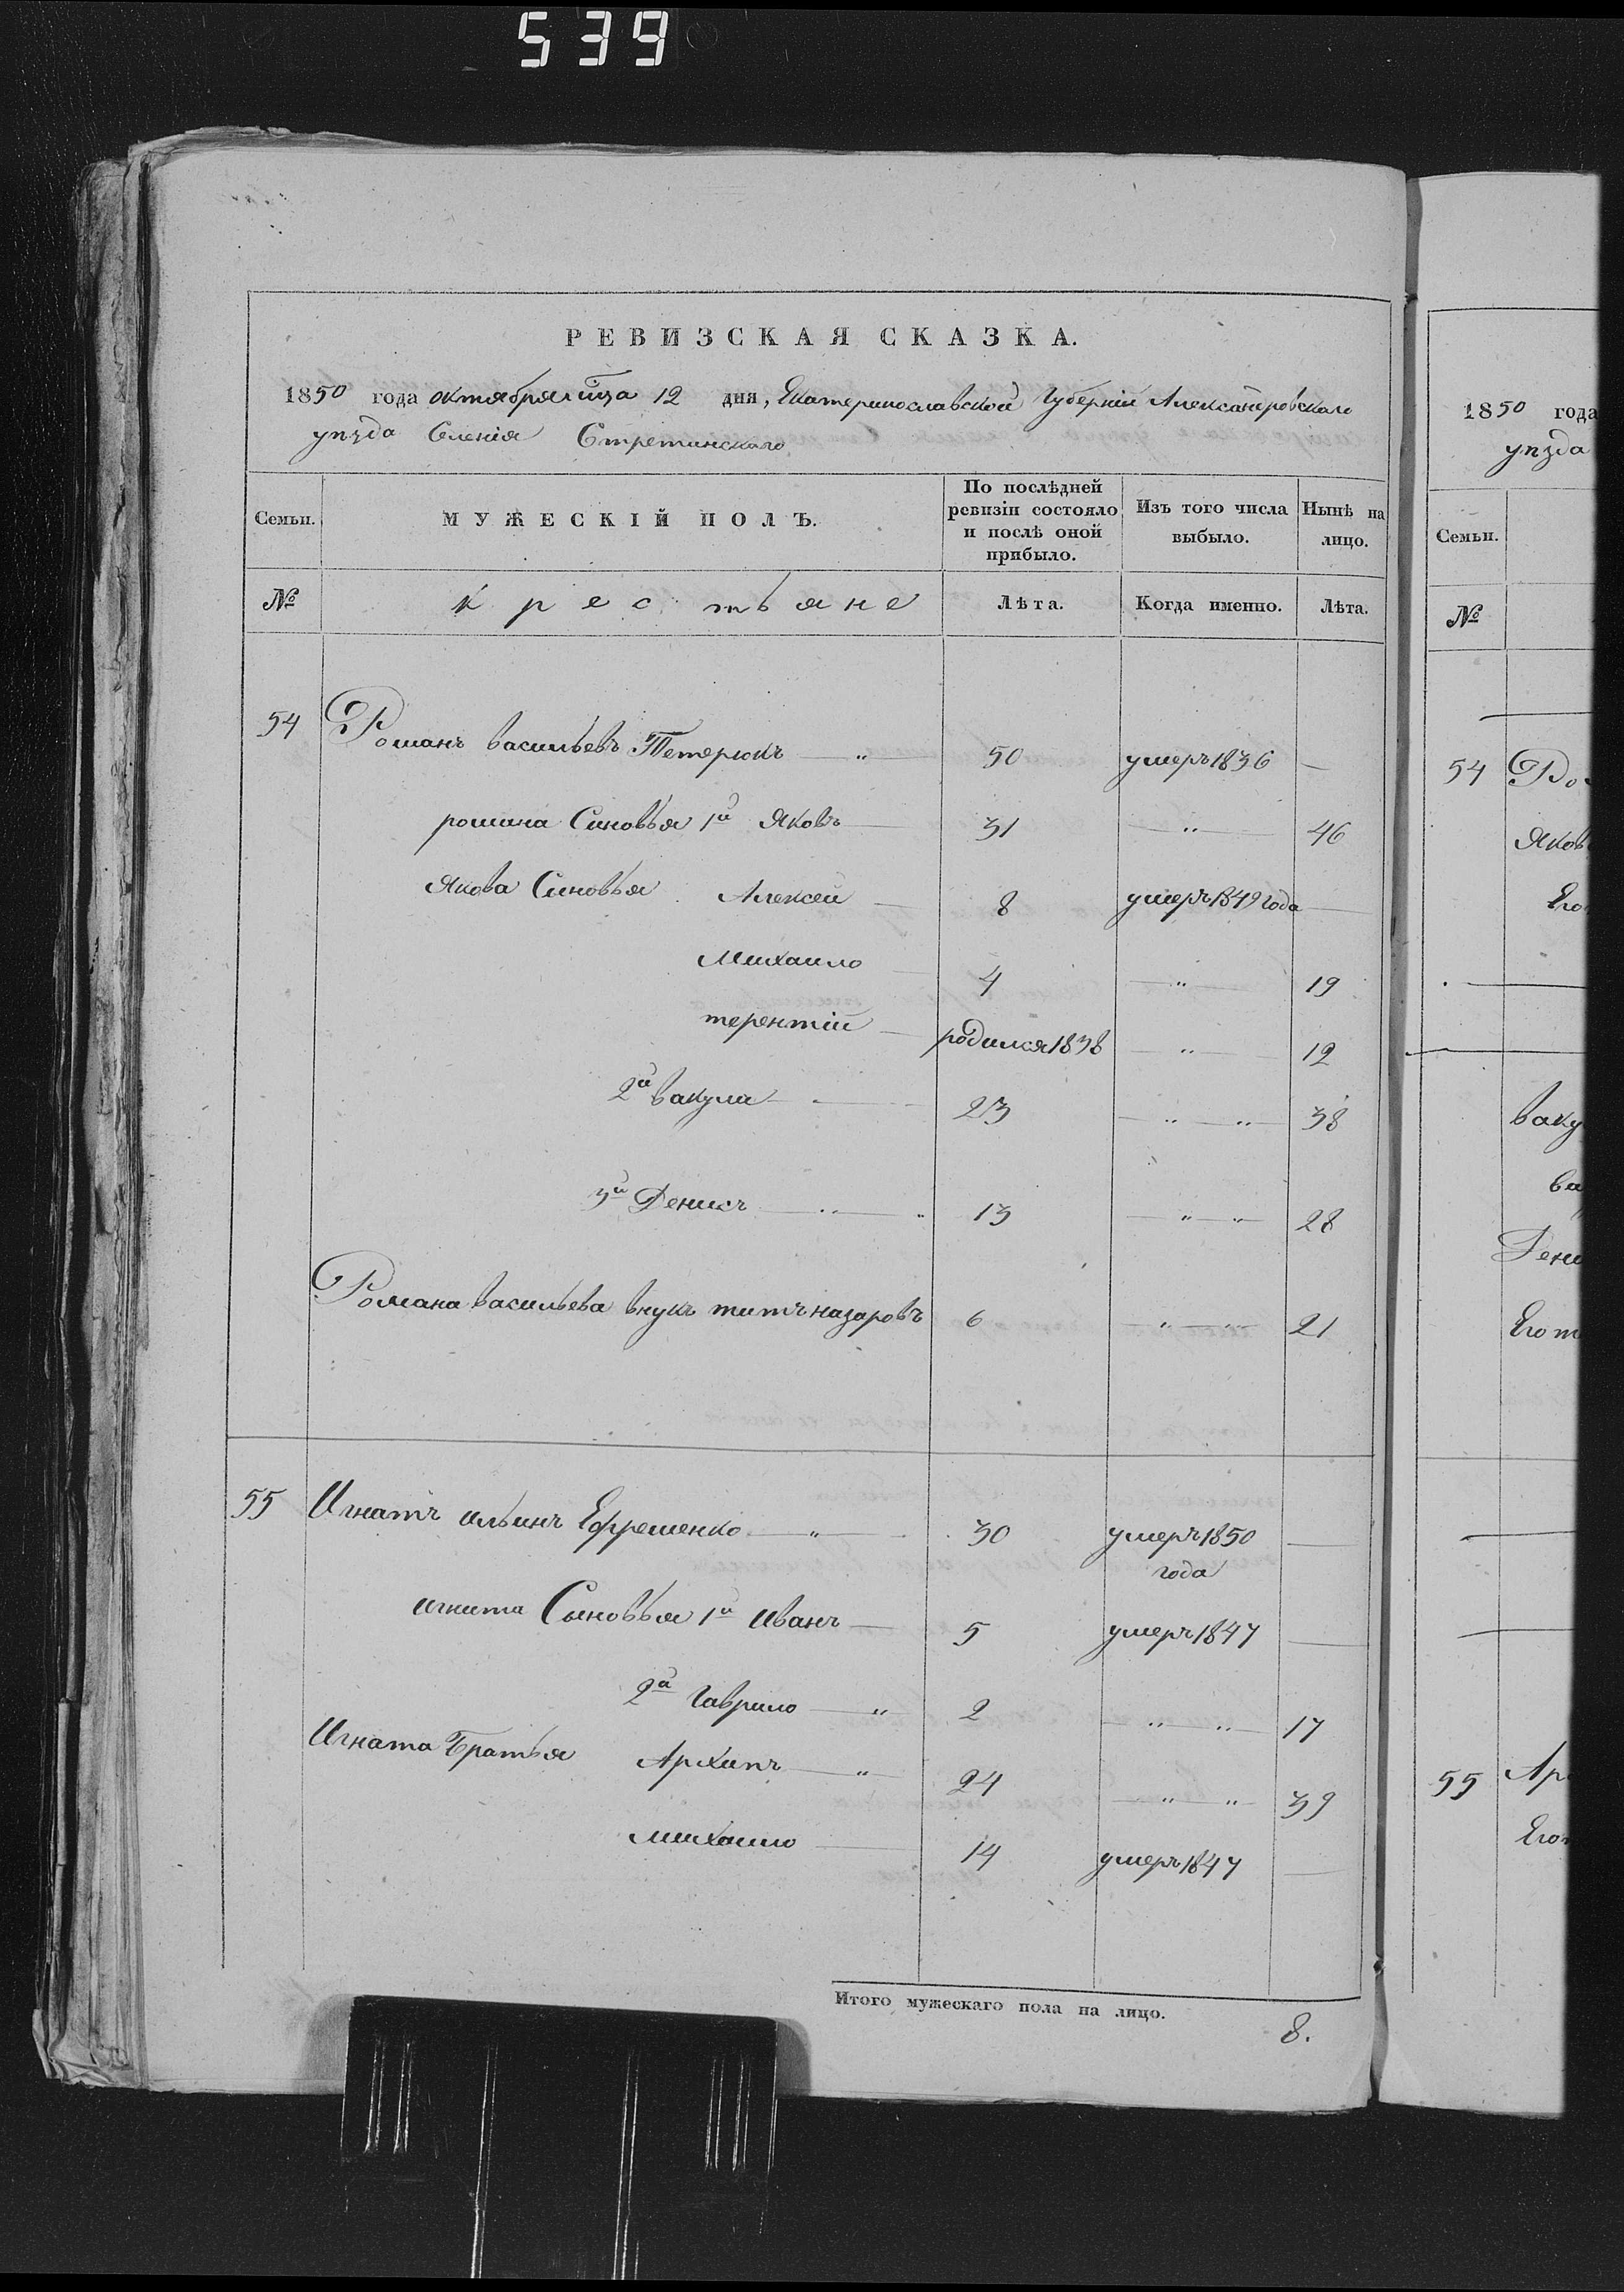 539
РЕВИЗСКАЯ СКАЗКА.
1850 года октября мца 12 дня, Екатеринославской Губерніи Александровского
уѣзда Селенія Стретинскаго
Семьи. МУЖЕСКІЙ ПОЛЪ. По послѣдней ревизіи состояло и послѣ оной прибыло. Изъ того числа выбыло. Нынѣ на лицо.
№ крестьяне Лѣта. Когда именно. Лѣта.
54 Романъ васильевъ Тетерюкъ — " 50 умеръ 1836 —
романа Синовья 1й Яковъ — 31 — " — 46
Якова Синовья Алексей — 8 умеръ 1849 года —
Михаило — 4 — " — 19
терентій — родился 1838 — " — 12
2й вакула — 23 — " — " — 38
3й Денисъ — " — " 13 — " — " 28
Романа васильева внукъ титъ назаровъ 6 — " — " — 21
55 Игнатъ ильинъ Ефременко — " — 30 умеръ 1850 —
года
игната Сыновья 1й Иванъ — 5 умеръ 1847 —
2й Гаврило — " — 2 — " — " — 17
Игната Братья Архипъ — " — 24 — " — " — 39
михаило — 14 умеръ 1847 —
Итого мужескаго пола на лицо. 8.
1850 года
уѣзда
Семьи.
№
54
Яков
Его
ваку
ва
Дени
Его
55 Ар
Его